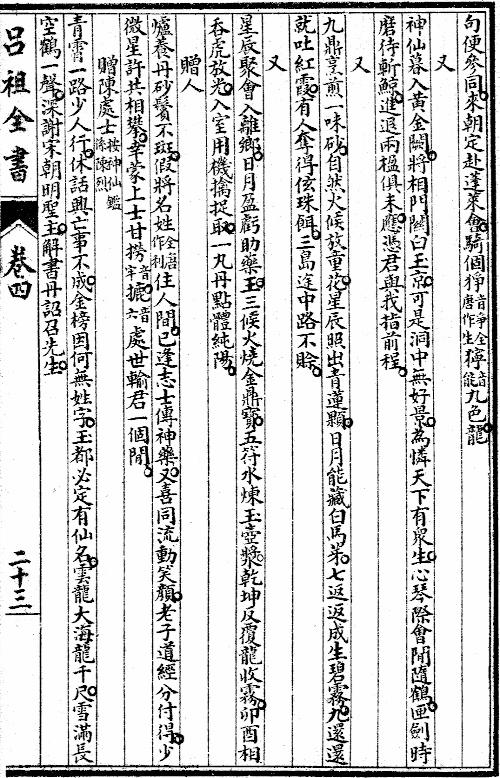 句便參同來朝定赴蓬萊會騎個猙音爭全唐作生獰音能九色龍
又
神仙暮入黃金闕將相門關白玉京可是洞中無好景為憐天下有眾生心琴際會閒隨鶴匣劍時
磨待斬鯨進退兩楹俱未應憑君與我指前程
又
九鼎烹煎一味砂自然火候放童花星辰照出青蓮顆日月能藏白馬芽七返返成生碧霧九還還
就吐紅霞有人奪得伭珠餌三島途中路不賒
又
星辰聚會入離鄉日月盈虧助藥王三候火燒金鼎寶五符水煉玉壺漿乾坤反覆龍收霧卯酉相
吞虎放光入室用機擒捉取一丸丹點體純陽
贈人
爐養丹砂鬢不斑假將名姓全唐作利住人間已逢志士傳神藥又喜同流動笑顏老子道經分付得少
微星許共相攀幸蒙上士甘撈音牢摝音六處世輸君一個閒
贈陳處士按神仙鑑係陳烈
青霄一路少人行休話興亡事不成金榜因何無姓字玉都必定有仙名雲龍大海龍千尺雪滿長
空鶴一聲深謝宋朝明聖主解書丹詔召先生
呂祖全書
卷四
二十三